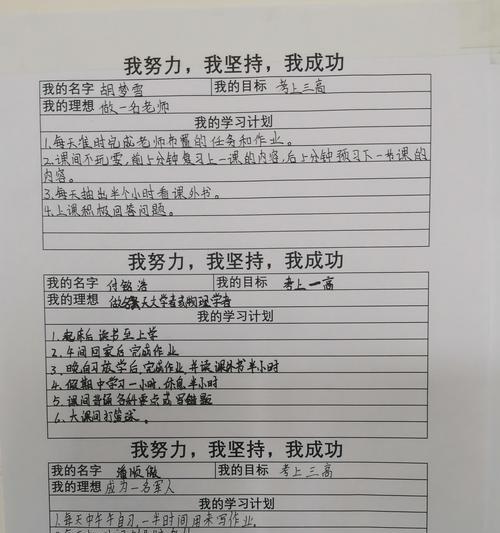 我努力，我坚持，我成功
我的名字 胡梦雪 我的目标 考上三高
我的理想 做一名老师
我的学习计划
1.每天准时完成老师布置的任务和作业。
2.课间不玩耍，前5分钟复习上一课的内容，后5分钟预习下一节课的
内容。
3.每天抽出半个小时看课外书。
4.上课积极回答问题。
我努力，我坚持，我成功
我的名字 付铭浩 我的目标 考上一高
我的理想 做 天文学者或物理学者
我的学习计划
1.起床后读书至上学
2.午间回家后完成作业
3.晚自习放学后，完成作业，并读课外书半小时
4.假期中学习一小时，休息半小时
5.课间背诵各科重点或冒错题
6.大课间打篮球。
我努力，我坚持，我成功
我的名字 潘顺傲 我的目标 考上三高
我的理想 应为一名军人
我的学习计划
1.每天中午午自习，一半时间用来写作业。